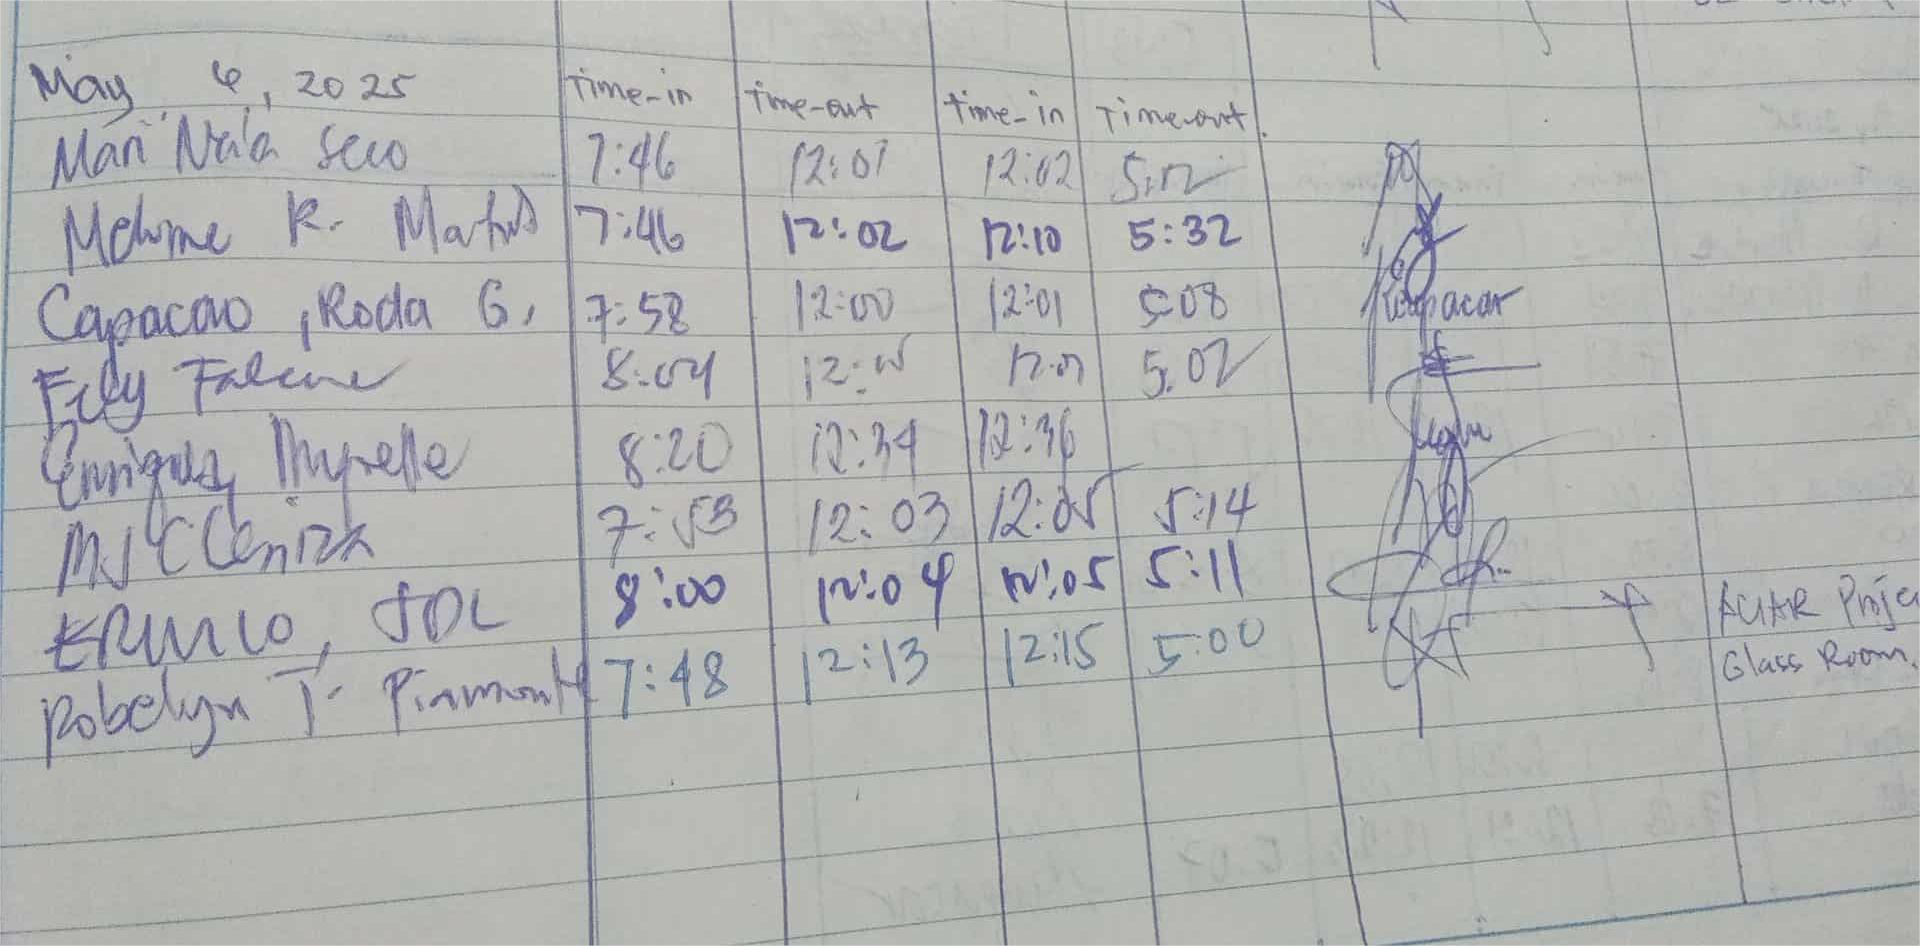 May 6, 2025 Time-in Time-out Time-in Time-out
Mari Seco 7:46 12:01 12:02 5:12
K. 7:46 12:02 12:10 5:32
Capacao, Roda G. 7:58 12:00 12:01 5:08
Fely Falcone 8:04 12: 12:07 5.02
Enriquez, Myrelle 8:20 12:34 12:36
MJ C Ceniza 7:53 12:03 12:05 5:14
JOL 8:00 12:04 12:05 5:11
Robelyn T. Piamonte 7:48 12:13 12:15 5:00
ACIAR Projec
Glass Room